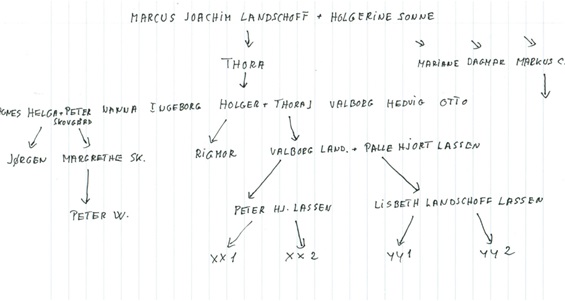 MARCUS JOACHIM LANDSCHOFF + HOLGERINE SONNE
THORA MARIANE DAGMAR MARKUS C.
GNES HELGA + PETER NANNA INGEBORG HOLGER + THORA J VALBORG HEDVIG OTTO
SKOVGÅRD
JØRGEN MARGRETHE SK. RIGMOR VALBORG LAND. + PALLE HJORT LASSEN
PETER W. PETER HJ. LASSEN LISBETH LANDSCHOFF LASSEN
XX1 XX2 YY1 YY2